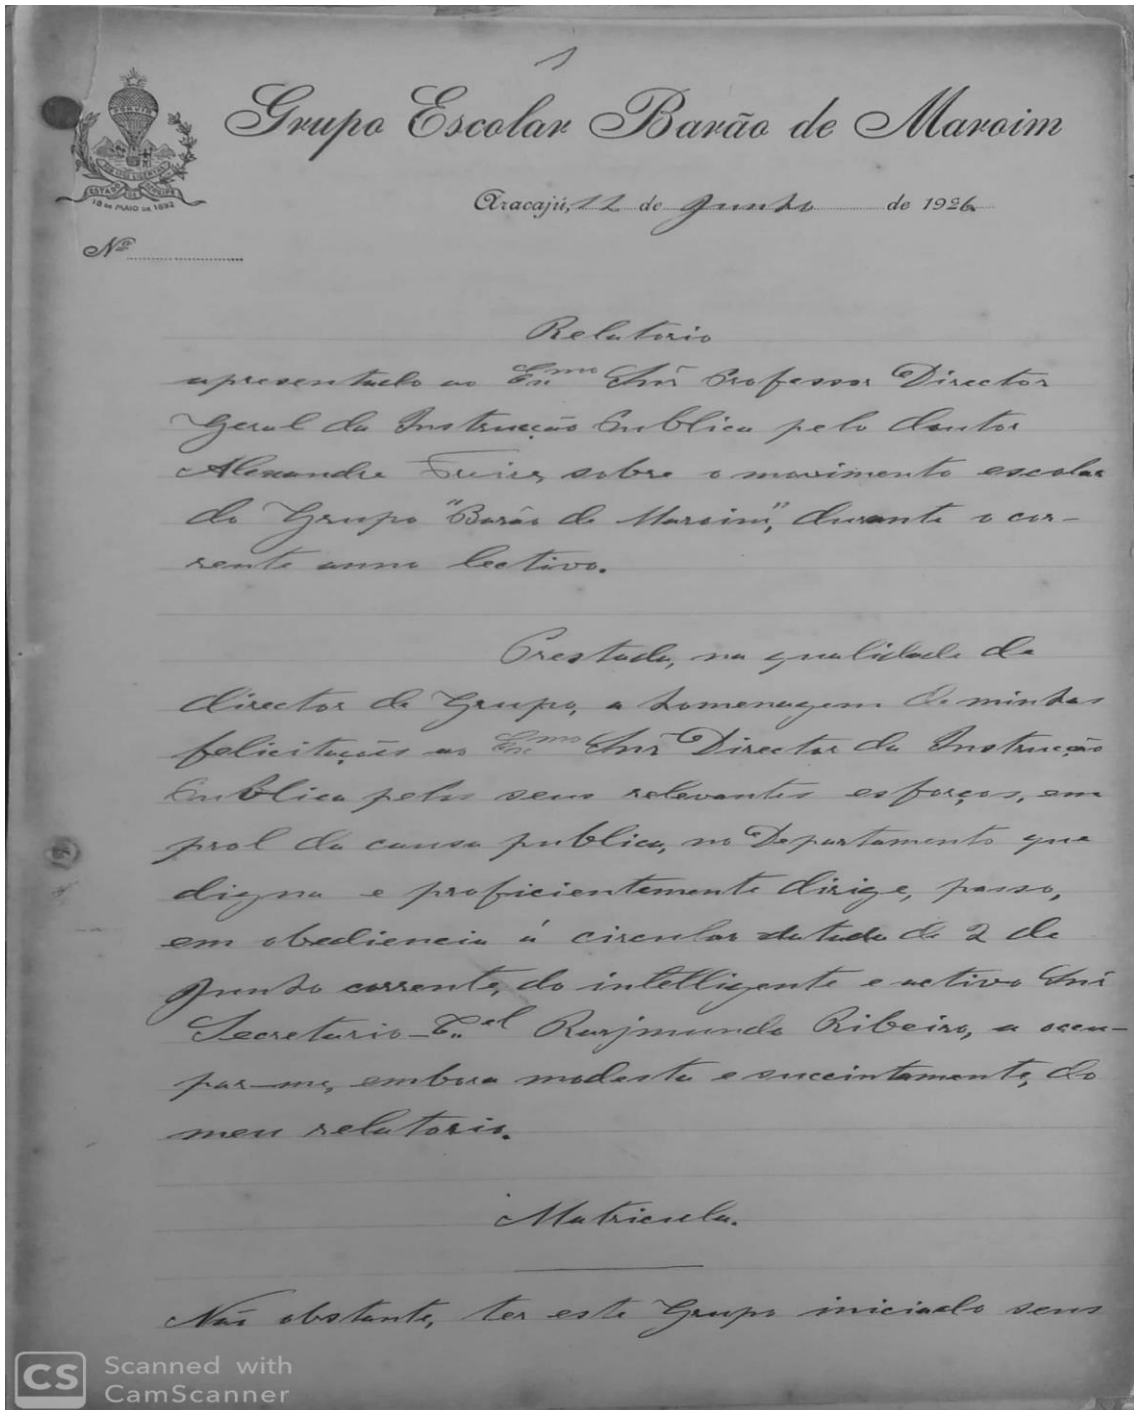 1
Grupo Escolar Barão de Maroim
Aracajú, 12 de Junho de 1926
ESTADO DE SERGIPE
18 DE MAIO DE 1892
Nº
Relatorio
apresentado ao Exmo Snr Professor Director
Geral da Instrucção Publica pelo doutor
Alexandre Freire, sobre o movimento escolar
do Grupo "Barão de Maroim", durante o cor-
rente anno lectivo.
Prestada, na qualidade de
director do Grupo, a homenagem de minhas
felicitações ao Exmo Snr Director da Instrucção
Publica pelos seus relevantes esforços, em
prol da causa publica, no Departamento que
digna e proficientemente dirige, passo,
em obediencia á circular datada de 2 de
Junho corrente, do intelligente e activo Snr
Secretario - Cel Raymundo Ribeiro, a occu-
par-me, embora modesta e succintamente, do
meu relatorio.
Matricula.
Não obstante, ter este Grupo iniciado seus
CS Scanned with
CamScanner